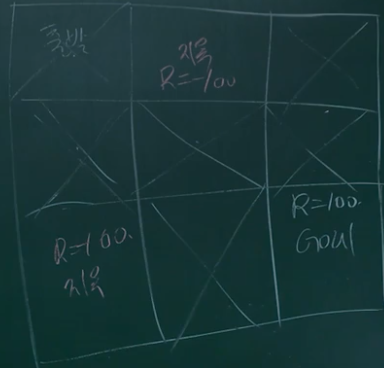 출발
지옥
R=-100
R=-100.
지옥
R=100.
Goal